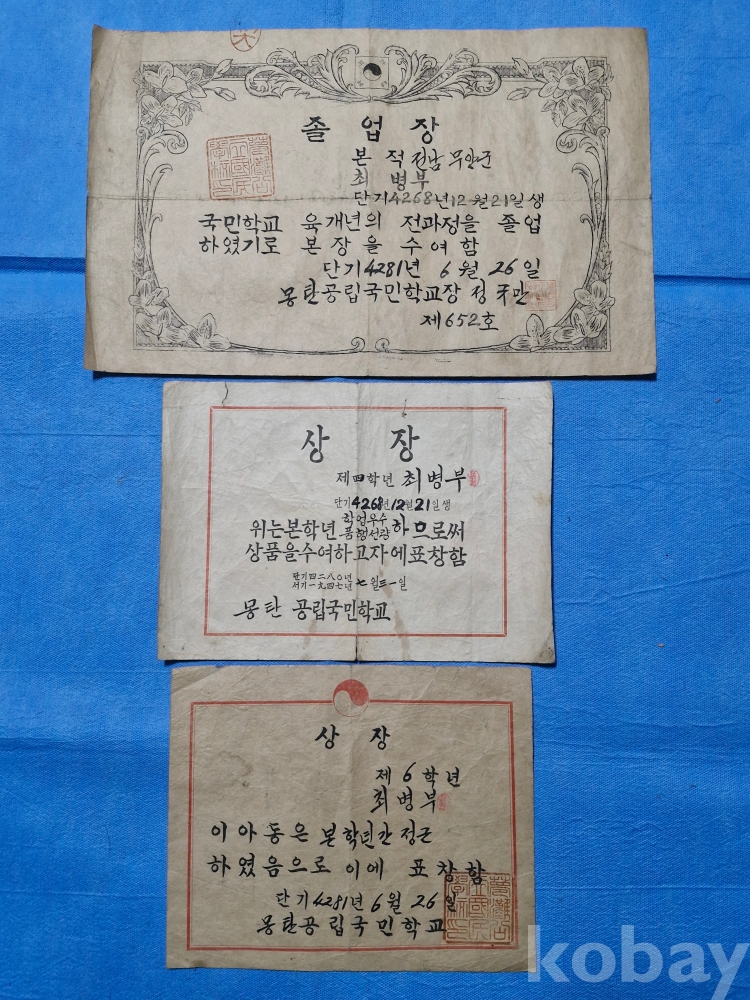 졸업장
본적 전남 무안군
최병부
단기4268년12월21일생
국민학교 육개년의 전과정을 졸업
하였기로 본장을 수여함
단기4281년 6월 26일
몽탄공립국민학교장 정
제652호
상장
제四학년 최병부
단기4268년12월21일생
위는본학년 학업우수 품행선량 하므로써
상품을수여하고자에표창함
단기四二八〇년
서기一九四七년 七월三一일
몽탄 공립국민학교
상장
제6학년
최병부
이아동은 본학년간 정근
하였음으로 이에 표창함
단기4281년 6월 26일
몽탄공립국민학교
kobay